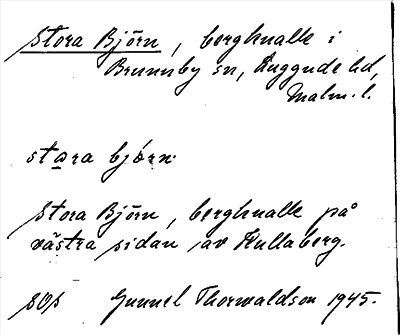 Stora Björn, bergknalle i
Brunnby sn, Luggude hd,
Malm. l.
stora björn.
Stora Björn, bergknalle på
västra sidan av Kullaberg.
Gunnel Thorwaldson 1945.